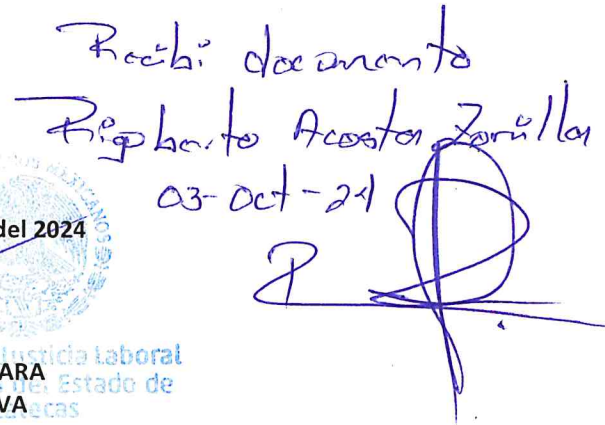 Recibí documento
Rigoberto Acosta Zorrilla
03-Oct-24
del 2024
Justicia Laboral
ARA
del Estado de
VA